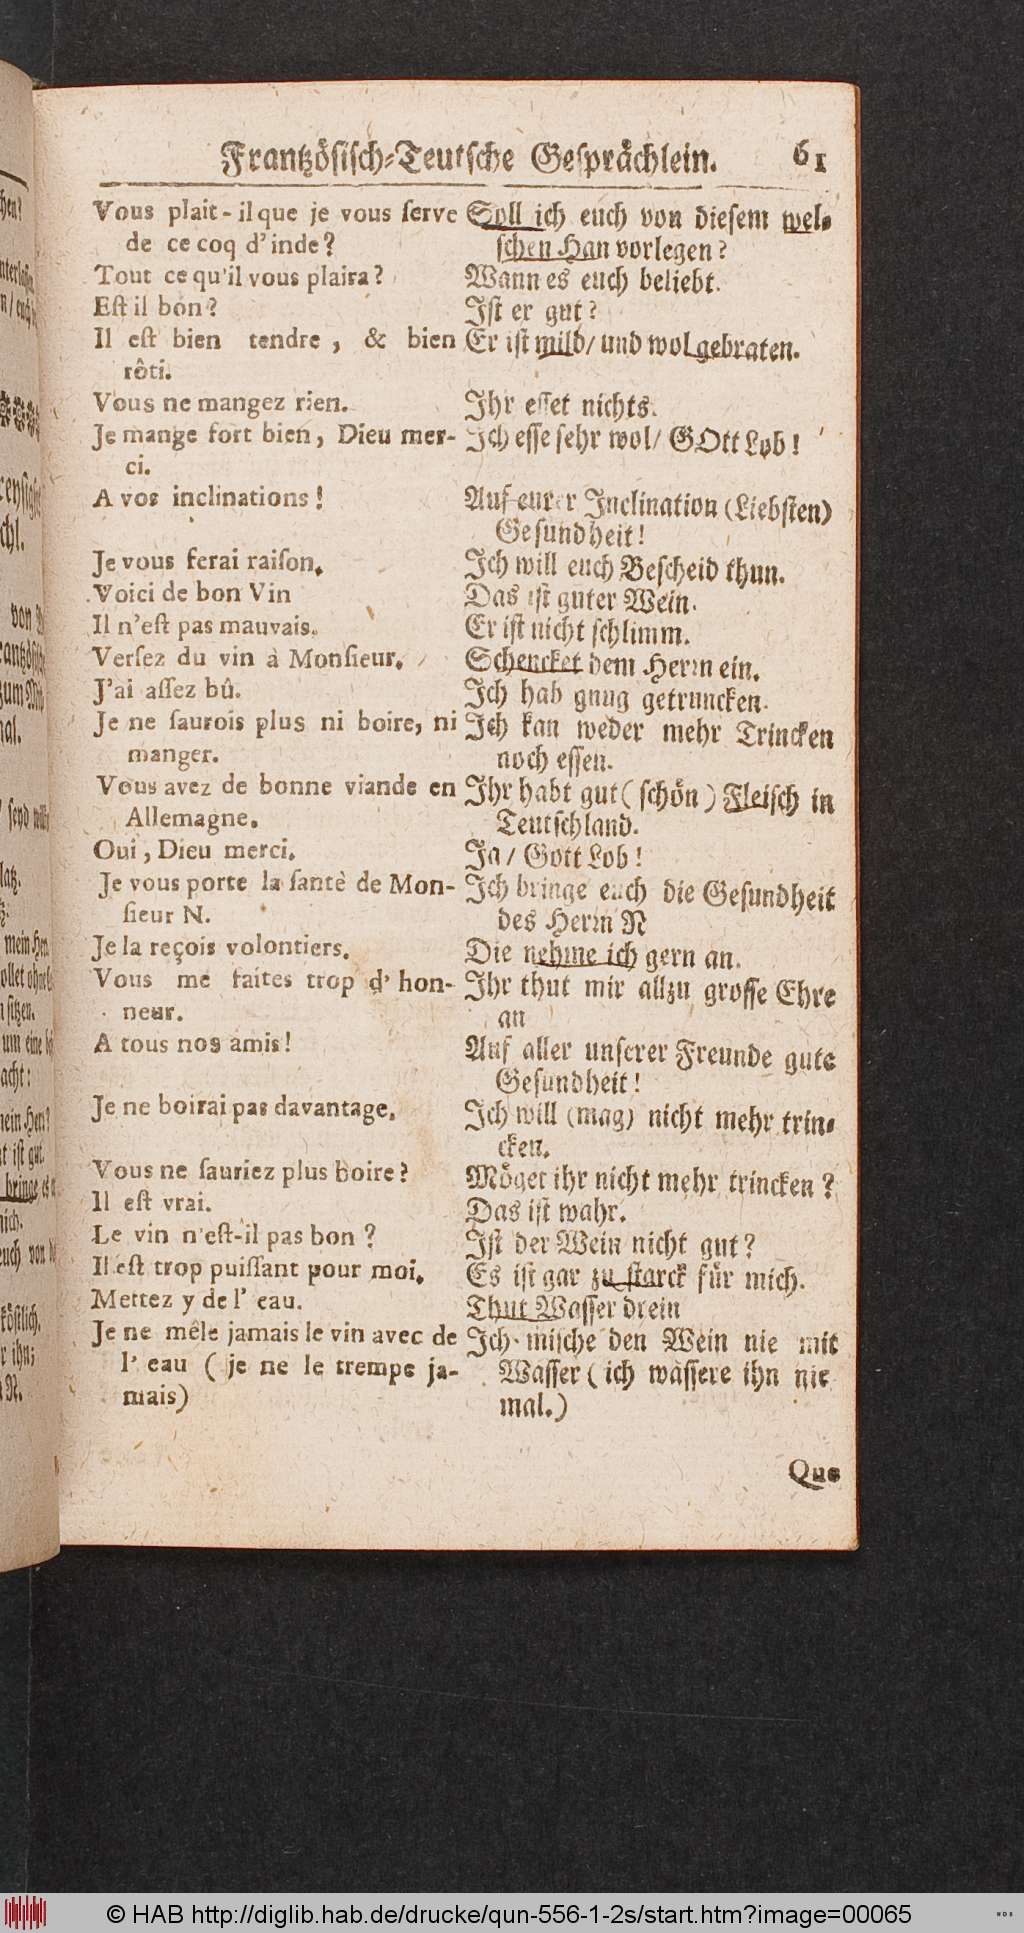 Frantzösisch-Teutsche Gesprächlein. 61
Vous plait-il que je vous ſerve
de ce coq d'inde?
Tout ce qu'il vous plaira?
Eſt il bon?
Il eſt bien tendre, & bien
rôti.
Vous ne mangez rien.
Je mange fort bien, Dieu mer-
ci.
A vos inclinations!
Je vous ferai raiſon.
Voici de bon Vin
Il n'eſt pas mauvais.
Verſez du vin à Monſieur.
J'ai aſſez bû.
Je ne ſaurois plus ni boire, ni
manger.
Vous avez de bonne viande en
Allemagne.
Oui, Dieu merci.
Je vous porte la ſantè de Mon-
ſieur N.
Je la reçois volontiers.
Vous me faites trop d'hon-
neur.
A tous nos amis!
Je ne boirai pas davantage.
Vous ne ſauriez plus boire?
Il eſt vrai.
Le vin n'eſt-il pas bon?
Il eſt trop puiſſant pour moi.
Mettez y de l' eau.
Je ne mêle jamais le vin avec de
l' eau (je ne le trempe ja-
mais)
Soll ich euch von dieſem wel-
ſchen Han vorlegen?
Wann es euch beliebt.
Iſt er gut?
Er iſt mild/ und wol gebraten.
Ihr eſſet nichts.
Ich eſſe ſehr wol/ GOtt Lob!
Auf eurer Inclination (Liebſten)
Geſundheit!
Ich will euch Beſcheid thun.
Das iſt guter Wein.
Er iſt nicht ſchlimm.
Schencket dem Herrn ein.
Ich hab gnug getruncken.
Ich kan weder mehr Trincken
noch eſſen.
Ihr habt gut (ſchön) Fleiſch in
Teutſchland.
Ja/ Gott Lob!
Ich bringe euch die Geſundheit
des Herrn N
Die nehme ich gern an.
Ihr thut mir allzu groſſe Ehre
an
Auf aller unſerer Freunde gute
Geſundheit!
Ich will (mag) nicht mehr trin-
cken.
Möget ihr nicht mehr trincken?
Das iſt wahr.
Iſt der Wein nicht gut?
Es iſt gar zu ſtarck für mich.
Thut Waſſer drein
Ich miſche den Wein nie mit
Waſſer (ich wäſſere ihn nie
mal.)
Que
© HAB http://diglib.hab.de/drucke/qun-556-1-2s/start.htm?image=00065